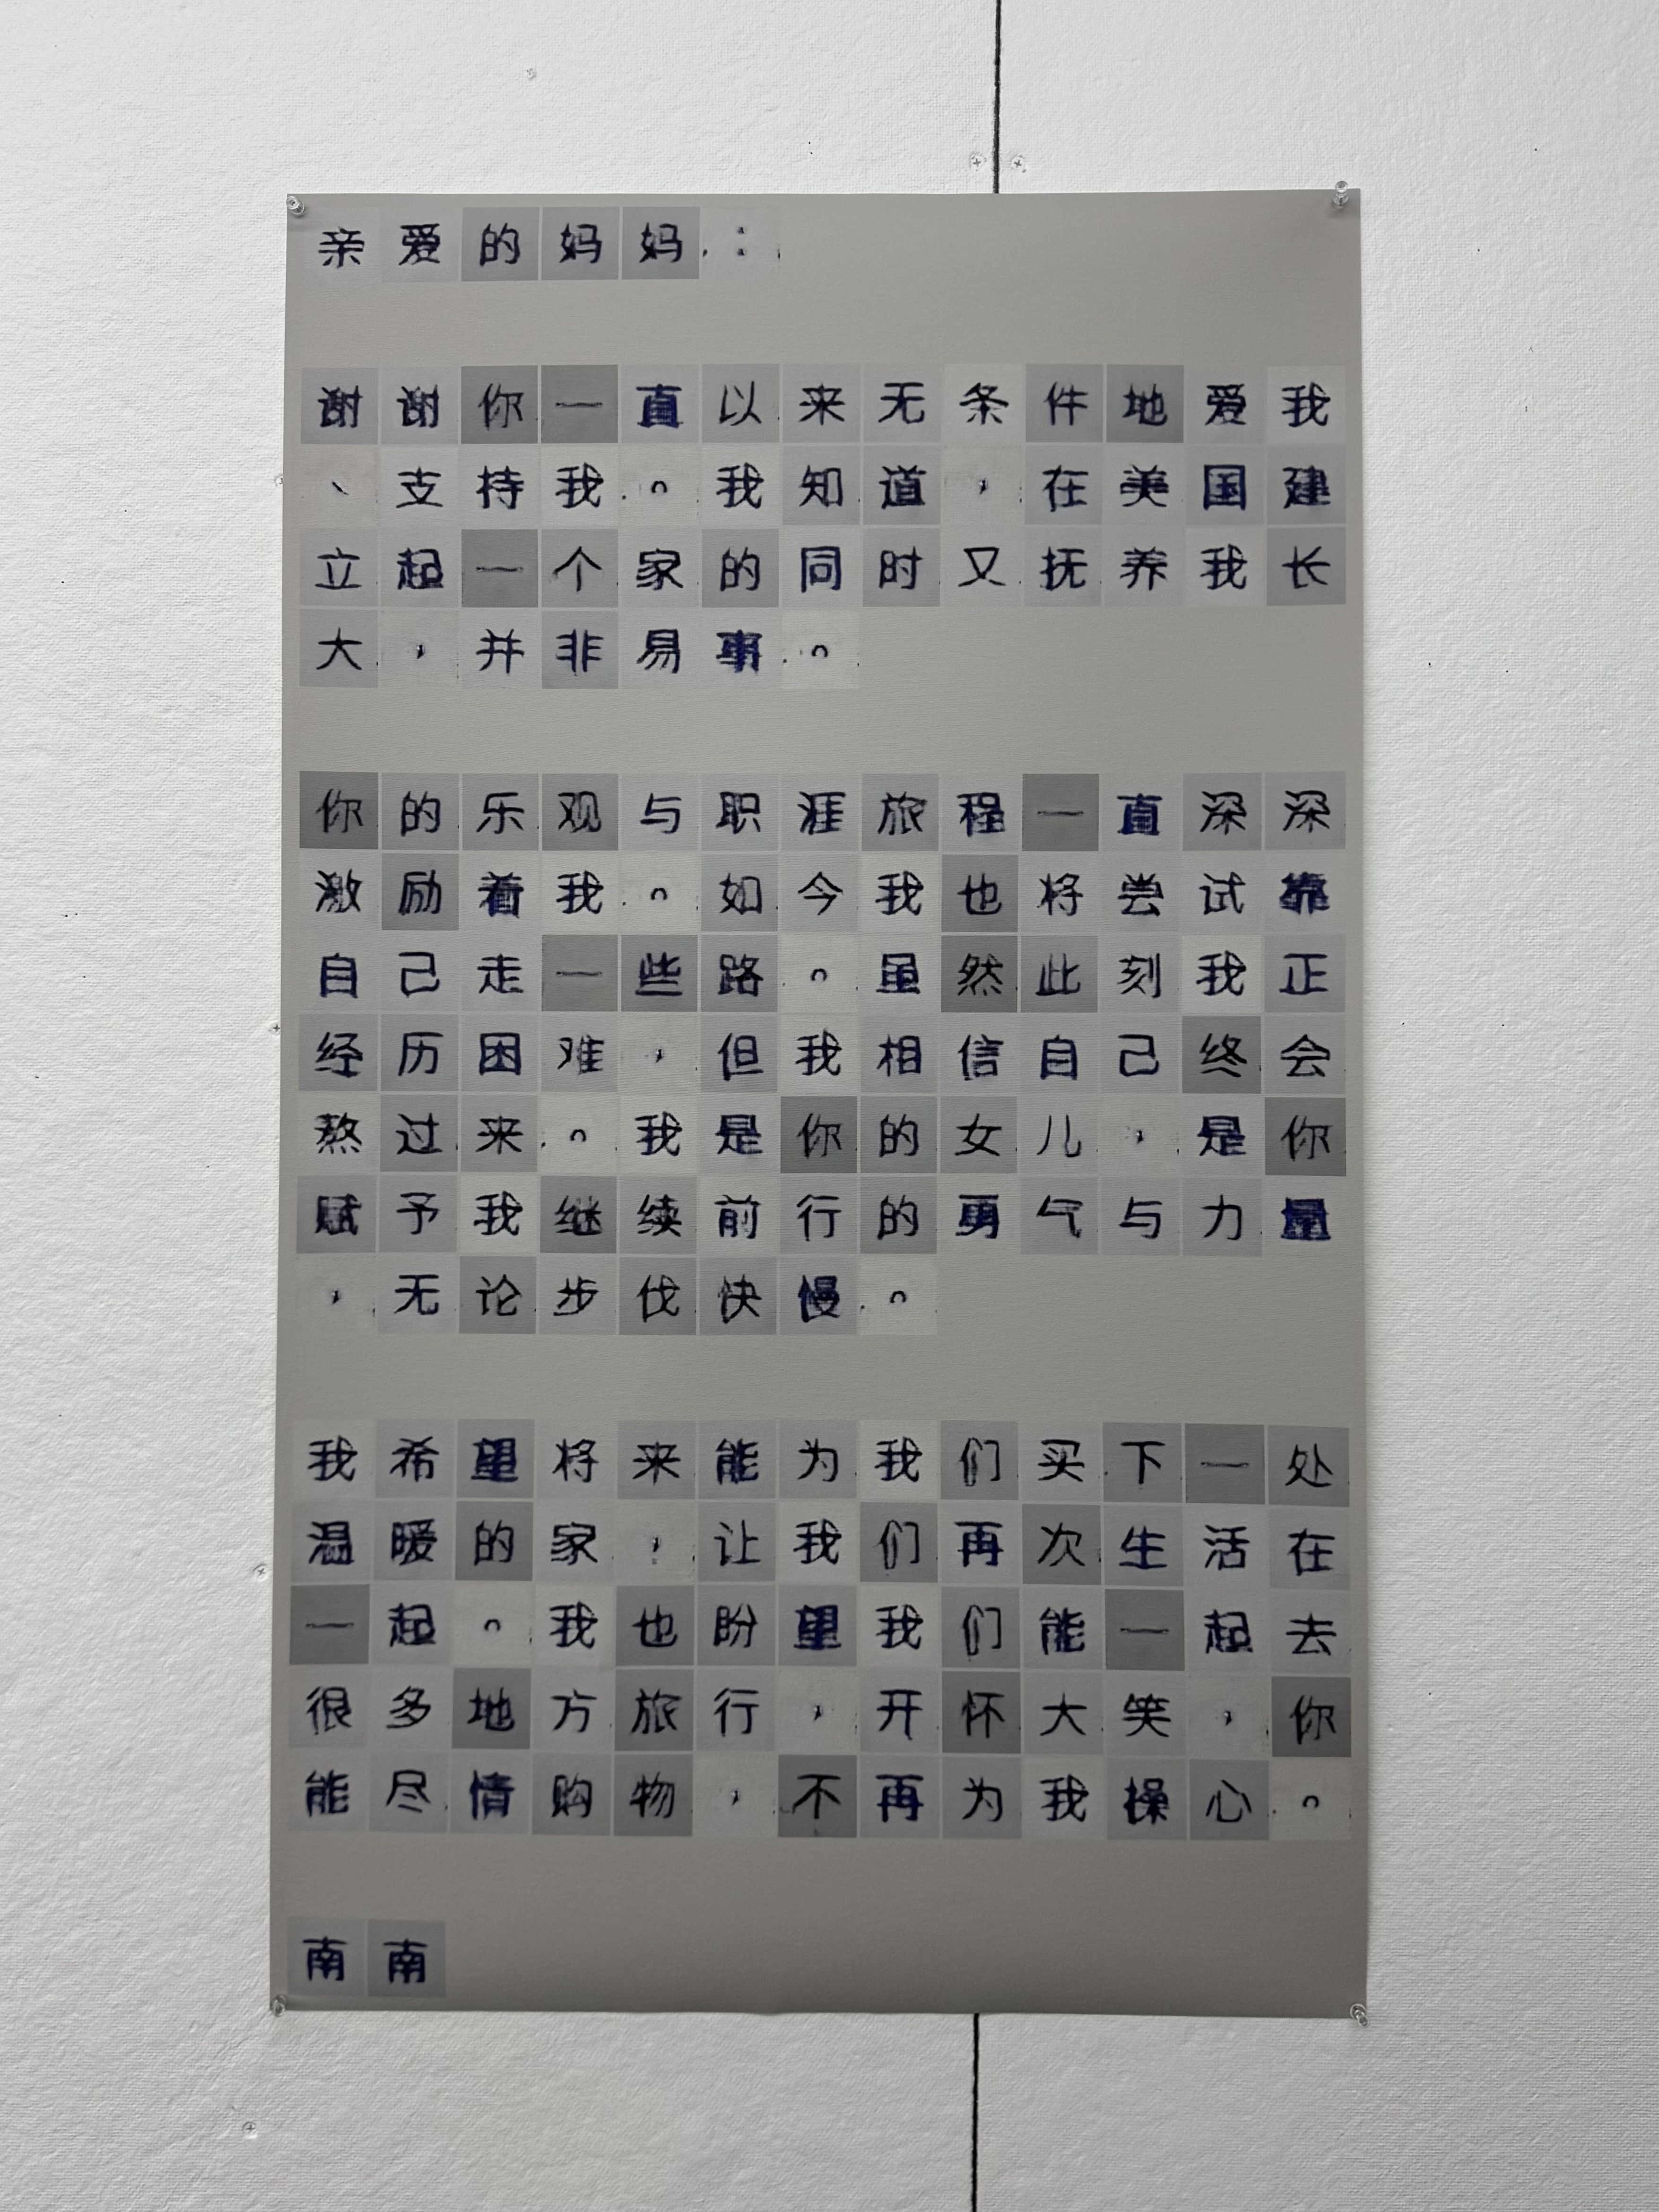 亲爱的妈妈：
谢谢你一直以来无条件地爱我
、支持我。我知道，在美国建
立起一个家的同时又抚养我长
大，并非易事。
你的乐观与职涯旅程一直深深
激励着我。如今我也将尝试靠
自己走一些路。虽然此刻我正
经历困难，但我相信自己终会
熬过来。我是你的女儿，是你
赋予我继续前行的勇气与力量
，无论步伐快慢。
我希望将来能为我们买下一处
温暖的家，让我们再次生活在
一起。我也盼望我们能一起去
很多地方旅行，开怀大笑，你
能尽情购物，不再为我操心。
南南